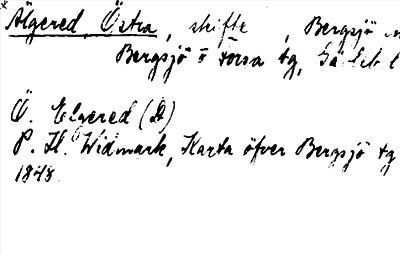 Älgered, Östra, skifte, Bergsjö
Bergsjö o Forsa tg, Gä
Ö. Elgered (D)
P. H. Widmark, Karta öfver Bergsjö tg
1848